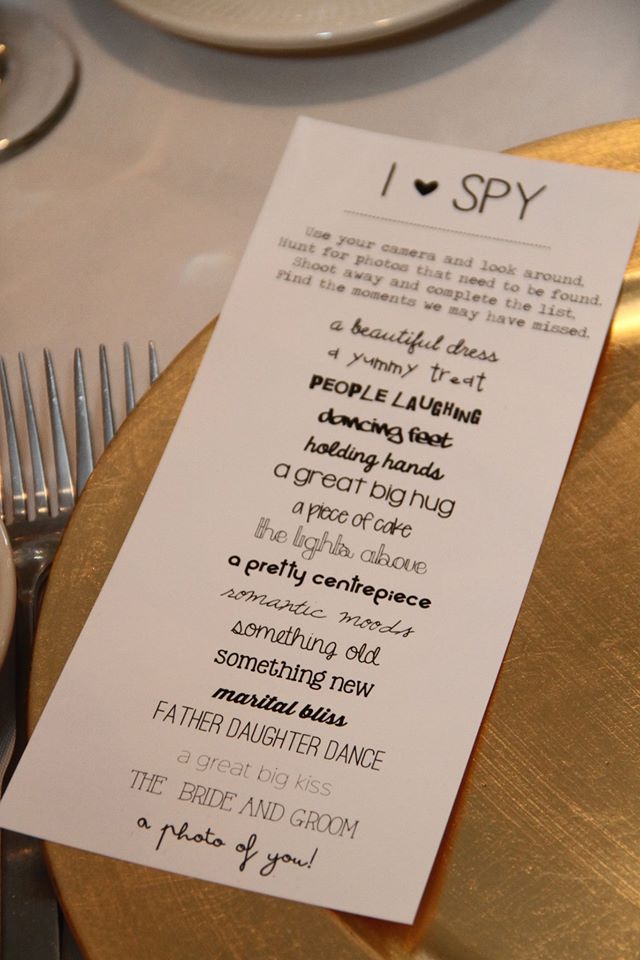 I ♥ SPY
Use your camera and look around.
Hunt for photos that need to be found.
Shoot away and complete the list,
Find the moments we may have missed.
a beautiful dress
a yummy treat
PEOPLE LAUGHING
dancing feet
holding hands
a great big hug
a piece of cake
the lights above
a pretty centrepiece
romantic moods
something old
something new
marital bliss
FATHER DAUGHTER DANCE
a great big kiss
THE BRIDE AND GROOM
a photo of you!